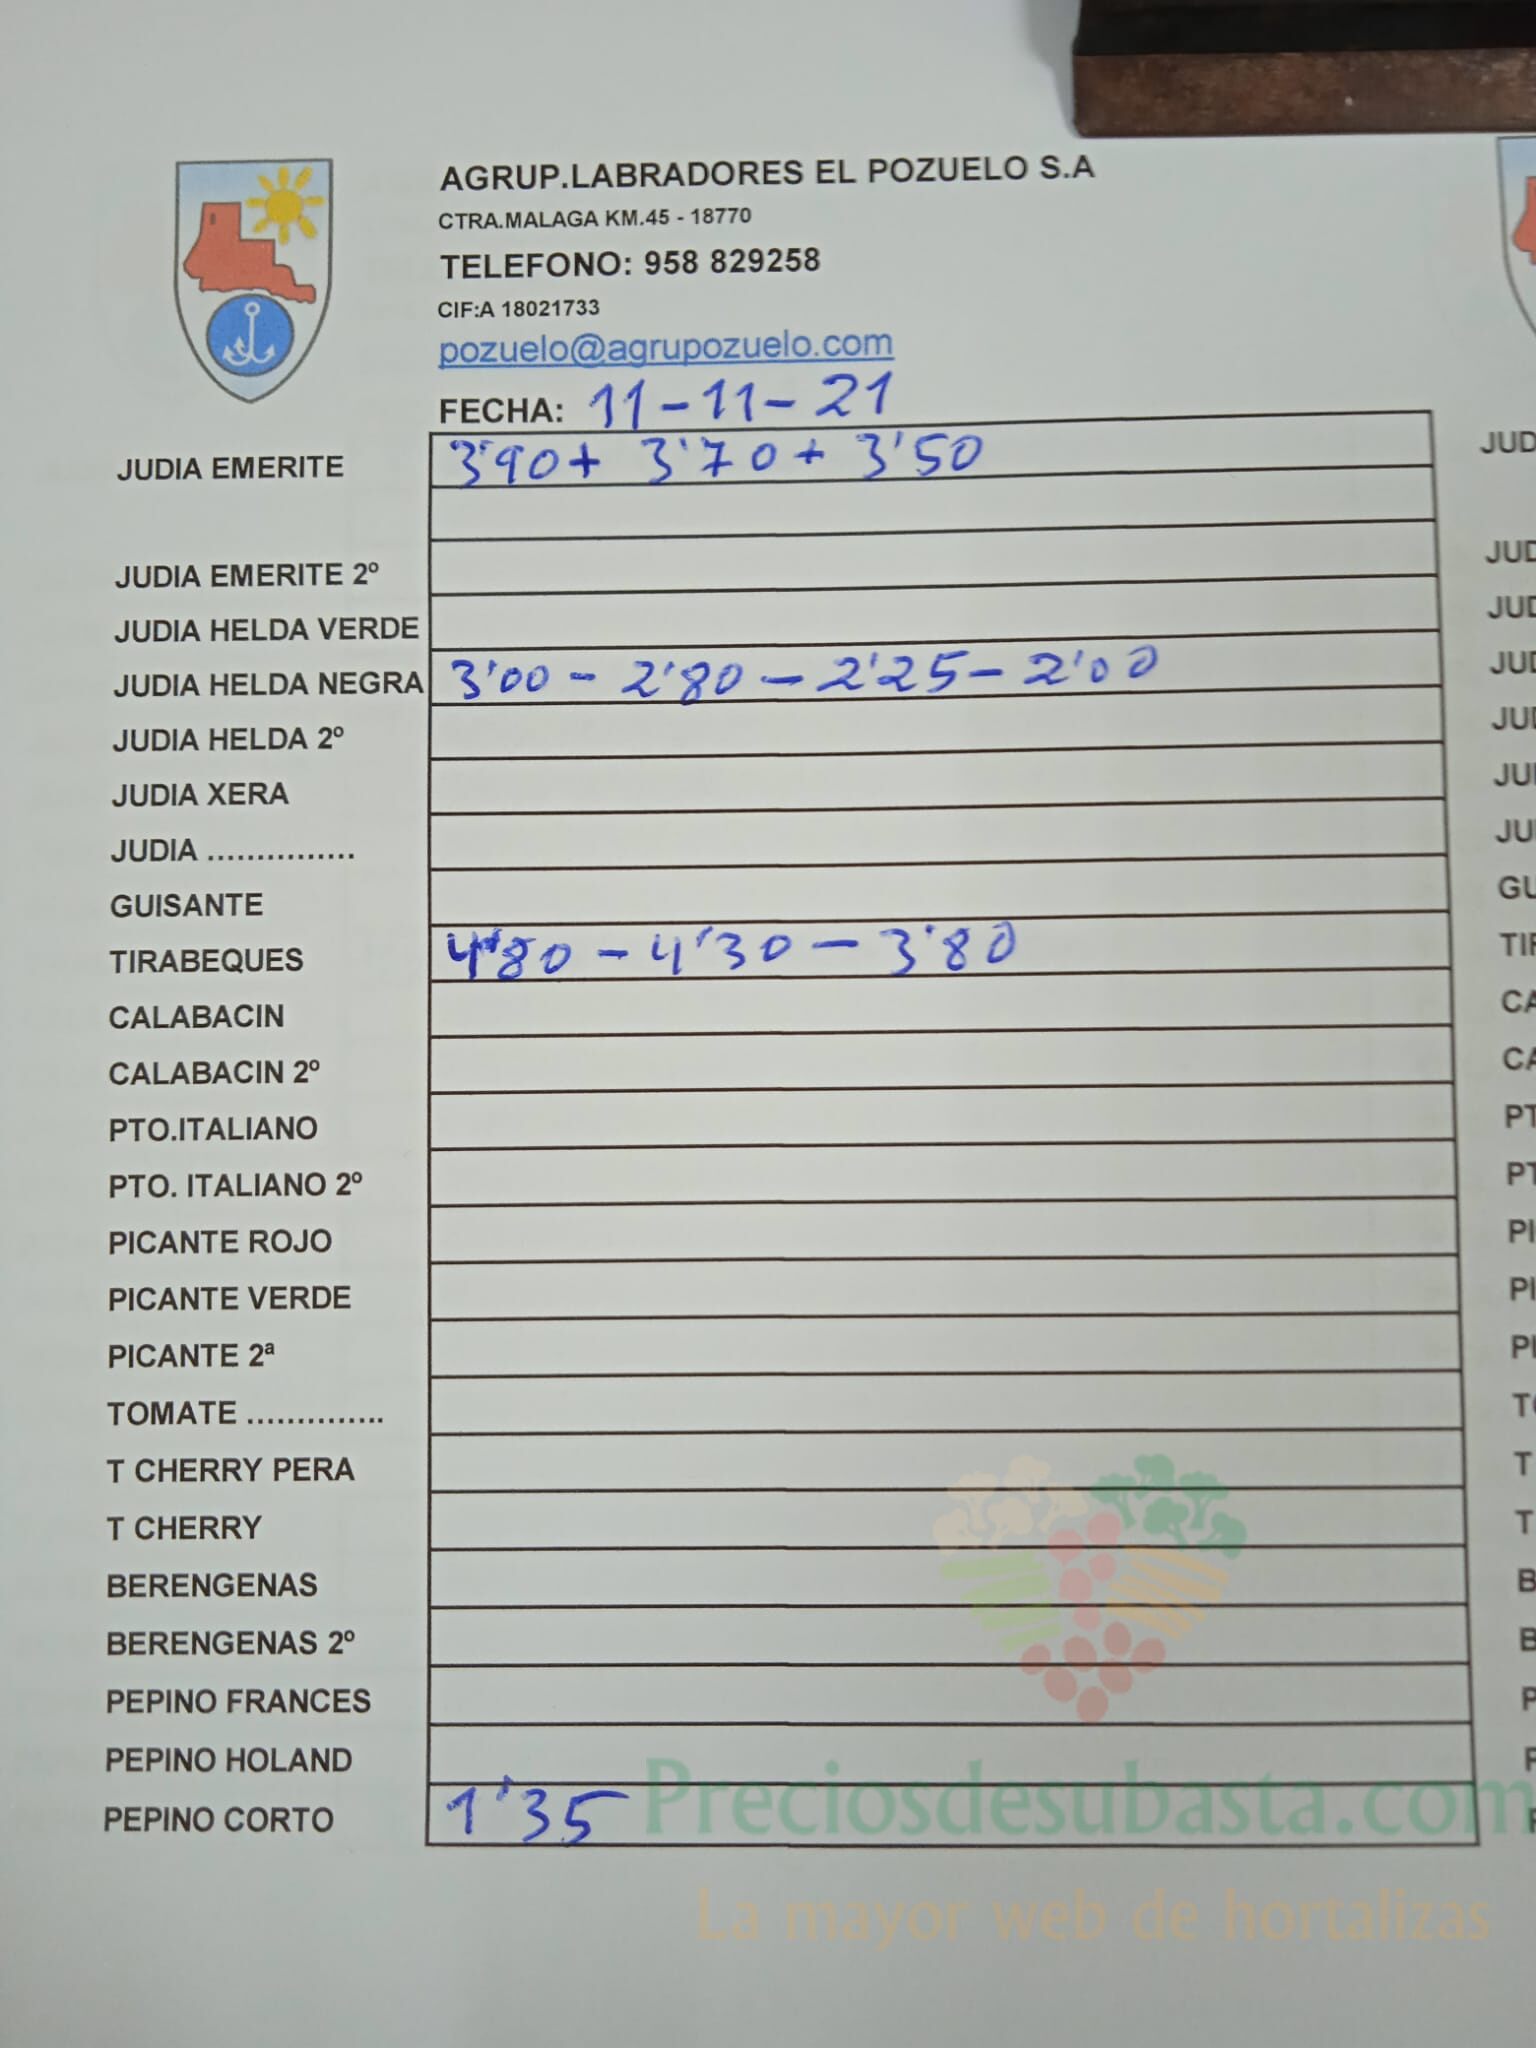 AGRUP.LABRADORES EL POZUELO S.A
CTRA.MALAGA KM.45 - 18770
TELEFONO: 958 829258
CIF:A 18021733
pozuelo@agrupozuelo.com
FECHA: 11-11-21
JUDIA EMERITE 3'90+ 3'70 + 3'50
JUDIA EMERITE 2º
JUDIA HELDA VERDE
JUDIA HELDA NEGRA 3'00 - 2'80 - 2'25 - 2'00
JUDIA HELDA 2º
JUDIA XERA
JUDIA ...............
GUISANTE
TIRABEQUES 4'80 - 4'30 - 3'80
CALABACIN
CALABACIN 2º
PTO.ITALIANO
PTO. ITALIANO 2º
PICANTE ROJO
PICANTE VERDE
PICANTE 2ª
TOMATE ..............
T CHERRY PERA
T CHERRY
BERENGENAS
BERENGENAS 2º
PEPINO FRANCES
PEPINO HOLAND
PEPINO CORTO 1'35
Preciosdesubasta.com
La mayor web de hortalizas